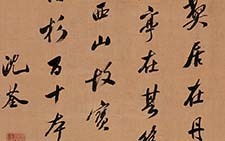 居在丹
亭在其
西山故寶
杉百十本
沈荃